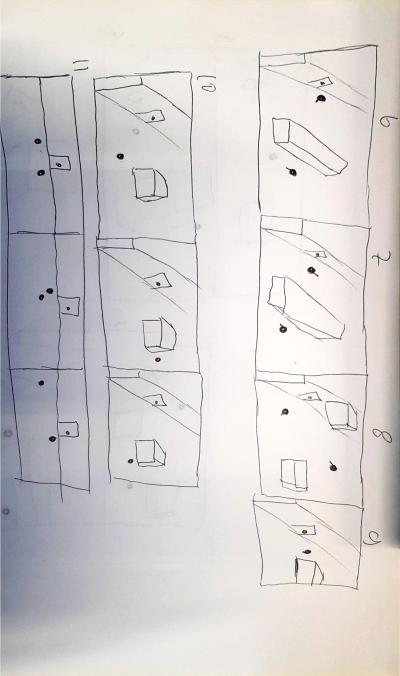 6 7 8 9
10
11